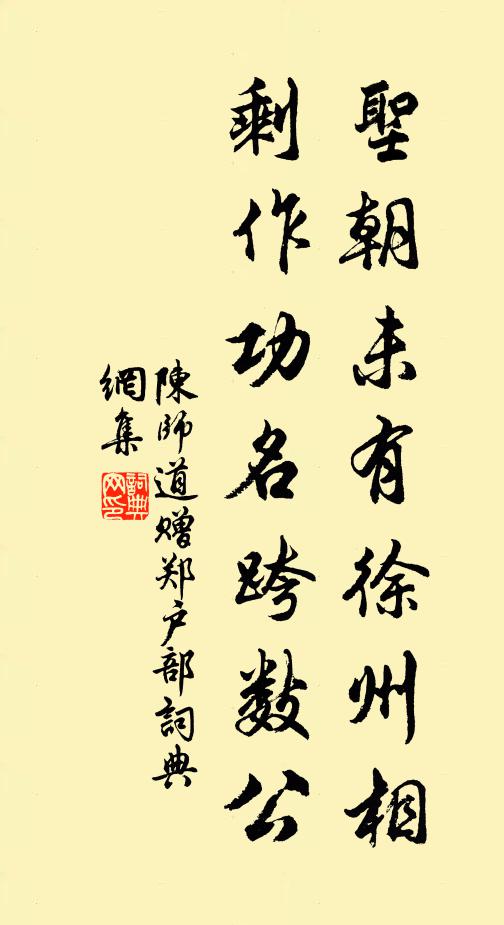 聖朝未有徐州相
剩作功名跨数公
陳師道赠郑户部詞典
網集
詞典
网印